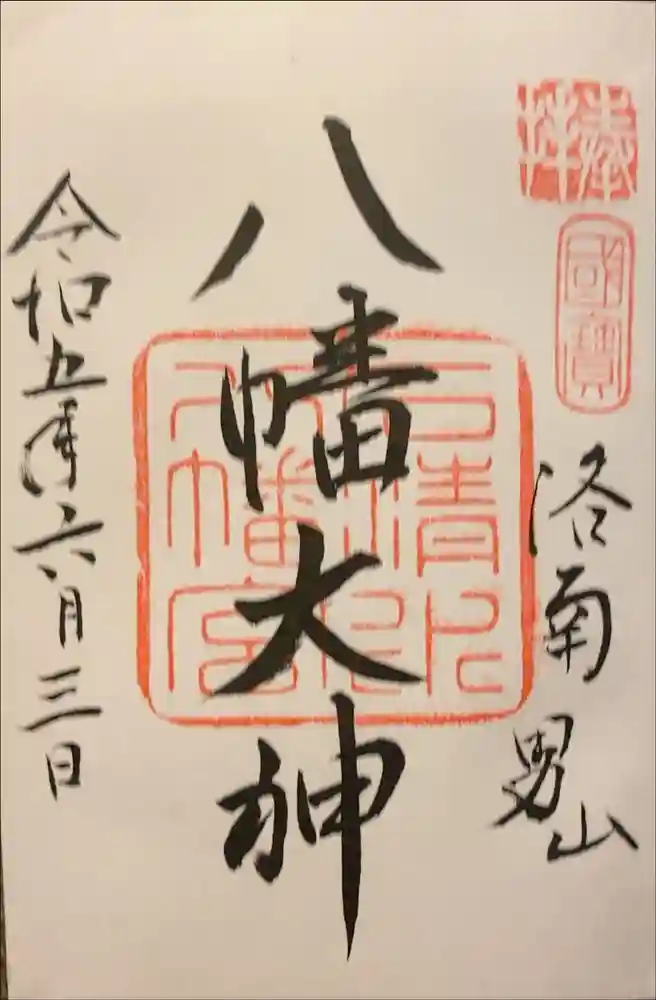 奉拝
國寶
洛南 男山
八幡大神
石清水八幡宮印
令和五年六月三日